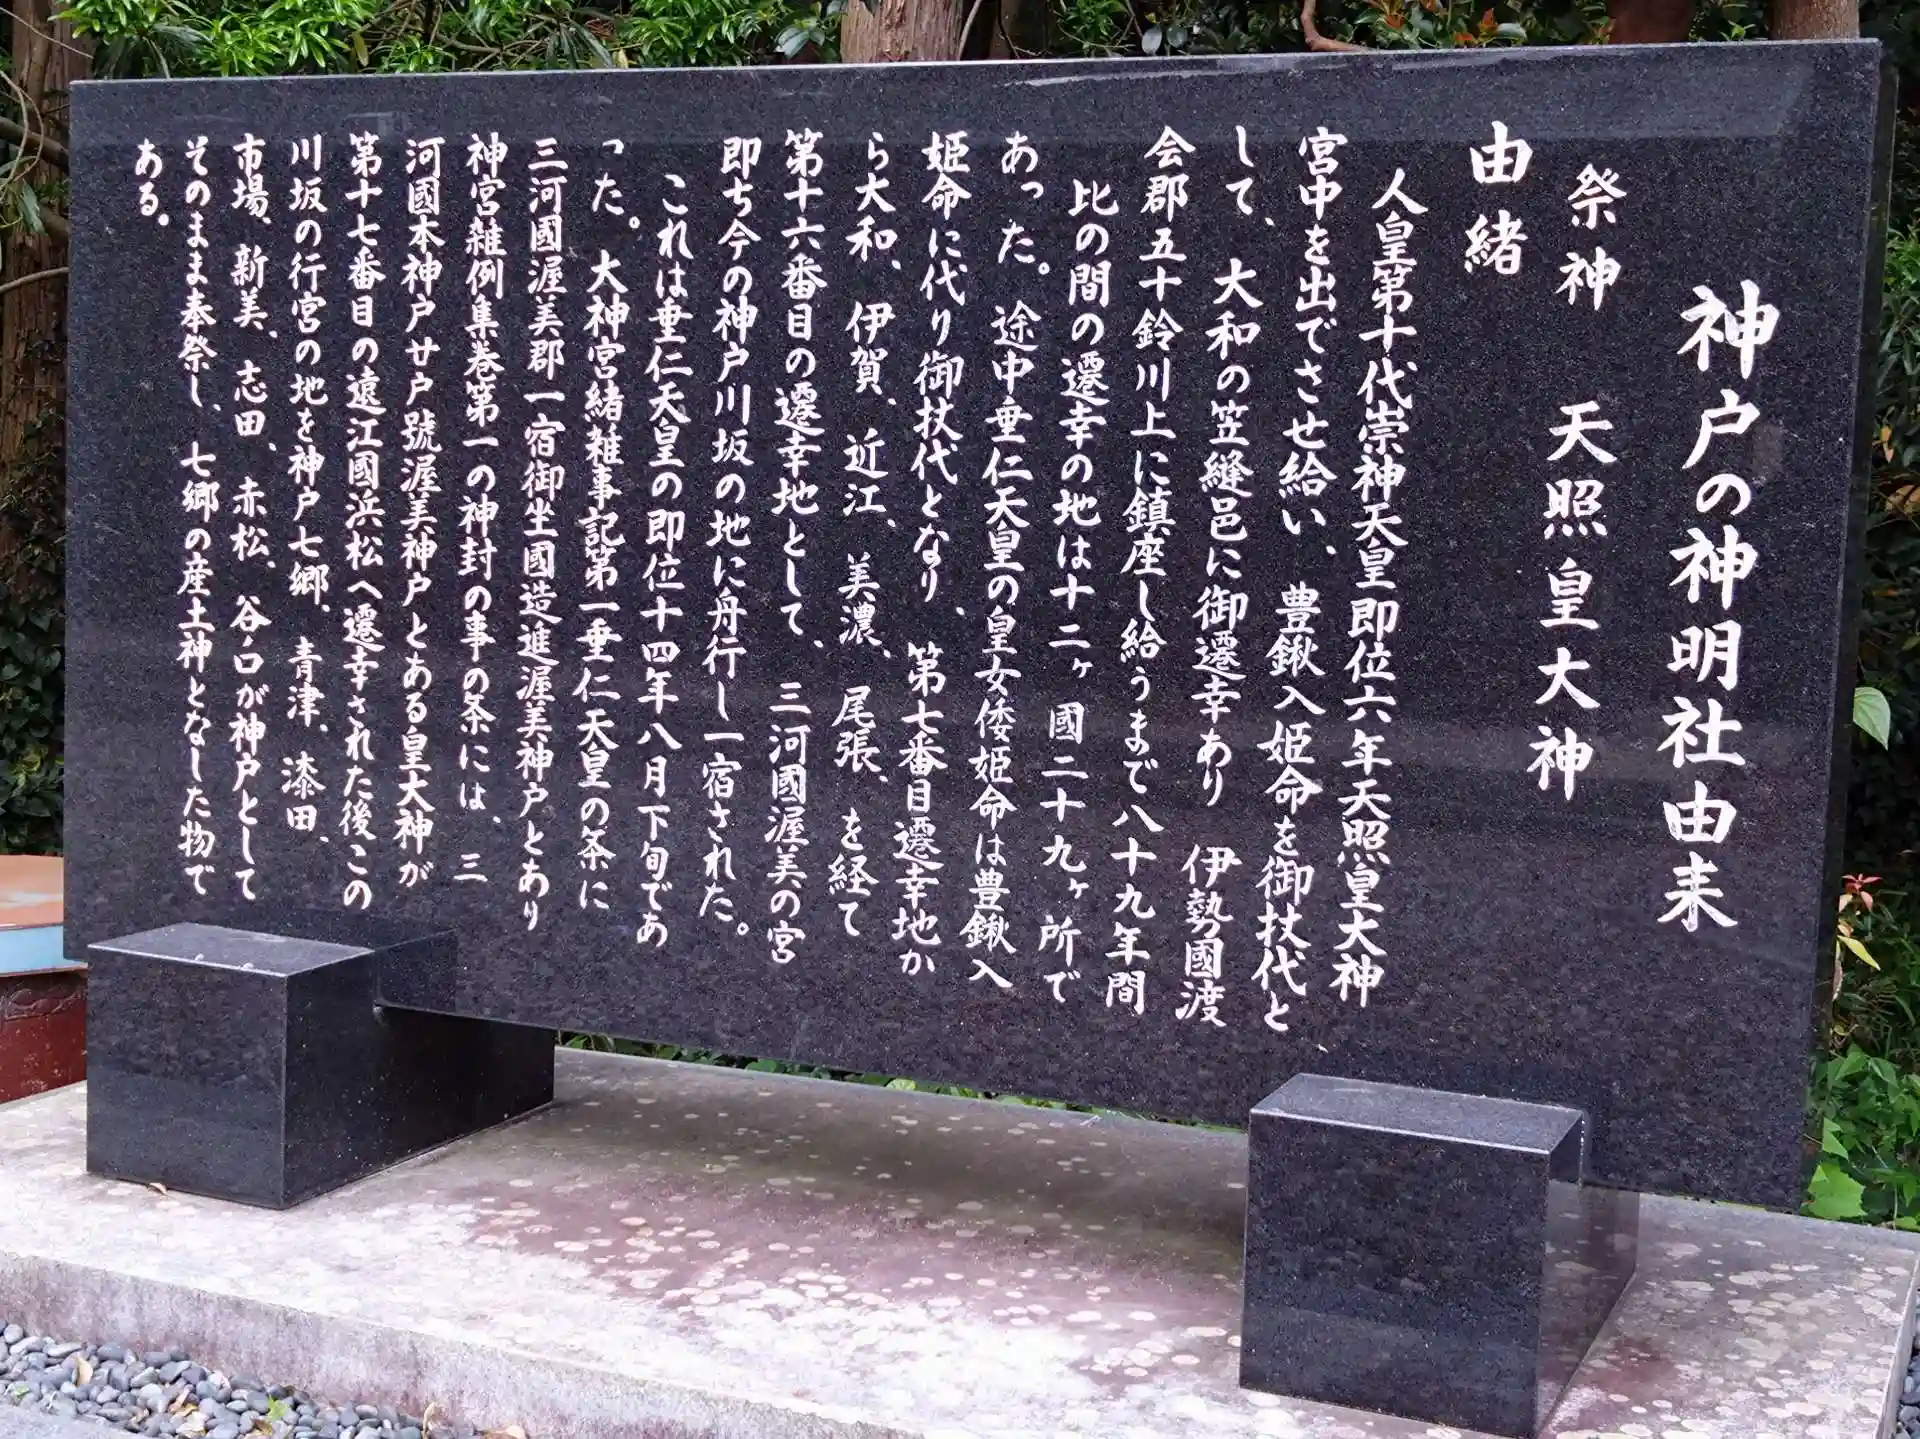 神戸の神明社由来
祭神　天照皇大神
由緒
人皇第十代崇神天皇即位六年天照皇大神
宮中を出でさせ給い、豊鍬入姫命を御杖代と
して、大和の笠縫邑に御遷幸あり　伊勢國渡
会郡五十鈴川上に鎮座し給うまで八十九年間
比の間の遷幸の地は十二ヶ國二十九ヶ所で
あった。途中垂仁天皇の皇女倭姫命は豊鍬入
姫命に代り御杖代となり、第七番目遷幸地か
ら大和、伊賀、近江、美濃、尾張、を経て
第十六番目の遷幸地として、三河國渥美の宮
即ち今の神戸川坂の地に舟行し一宿された。
これは垂仁天皇の即位十四年八月下旬であ
った。大神宮緒雑事記第一垂仁天皇の条に
三河國渥美郡一宿御坐國造進渥美神戸とあり
神宮雑例集巻第一の神封の事の条には、三
河國本神戸廿戸號渥美神戸とある皇大神が
第十七番目の遠江國浜松へ遷幸された後この
川坂の行宮の地を神戸七郷、青津、漆田、
市場、新美、志田、赤松、谷ノ口が神戸として
そのまま奉祭し、七郷の産土神となした物で
ある。